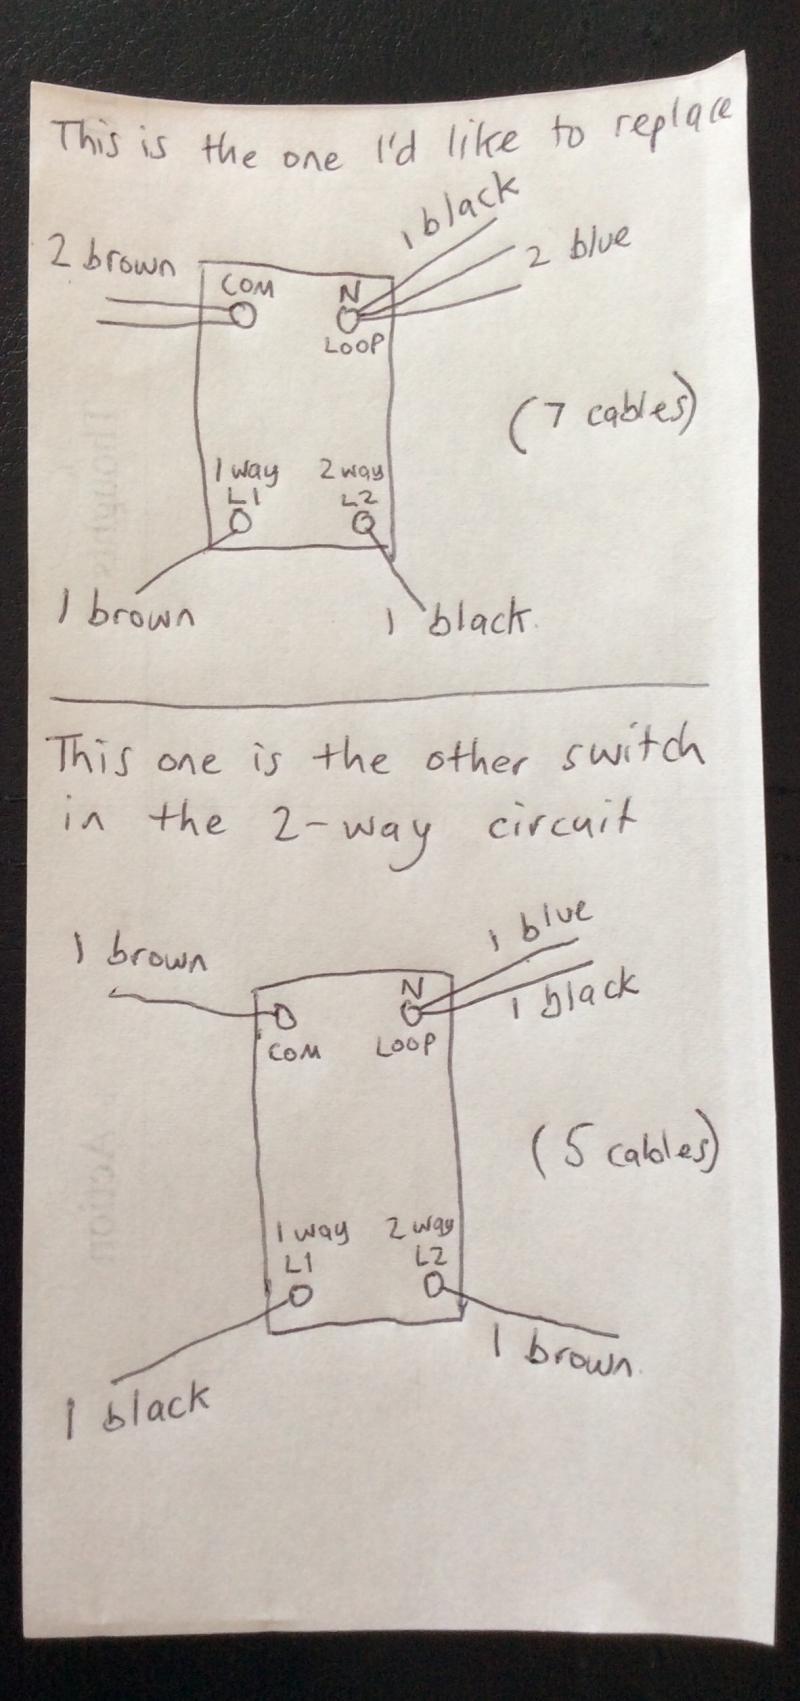 This is the one I'd like to replace
1 black
2 brown
2 blue
COM N
LOOP
(7 cables)
1 way 2 way
L1 L2
1 brown
1 black.
This one is the other switch
in the 2-way circuit
1 blue
1 brown
1 black
N
COM LOOP
(5 cables)
1 way 2 way
L1 L2
1 brown.
1 black
Thoughts
Action